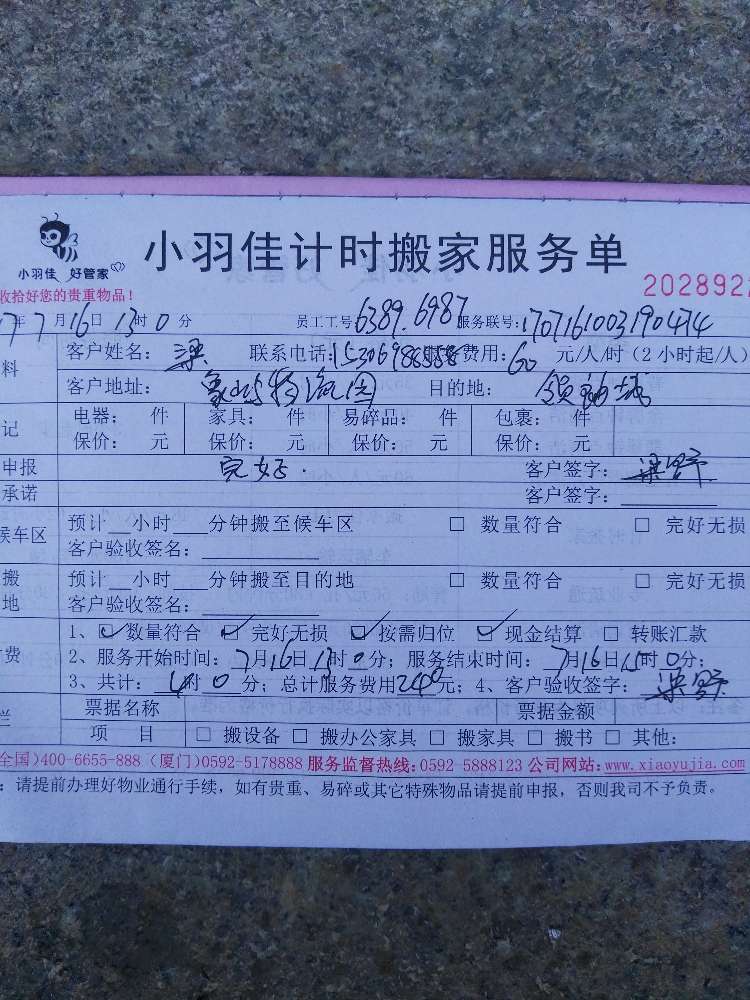 小羽佳 好管家
小羽佳计时搬家服务单
收拾好您的贵重物品!
2028922
7年7月16日13时0分 员工工号6389.6987 服务联号:1707161003190474
料 客户姓名: 梁 联系电话: 费用:60元/人/时(2小时起/人)
客户地址: 目的地: 领
记 电器: 件 家具: 件 易碎品: 件 包裹: 件
保价: 元 保价: 元 保价: 元 保价: 元
申报 完好. 客户签字: 梁
承诺 客户签字:
候车区 预计__小时___分钟搬至候车区 □ 数量符合 □ 完好无损
客户验收签名:
搬 预计__小时___分钟搬至目的地 □ 数量符合 □ 完好无损
地 客户验收签名:
1、☑数量符合 ☑完好无损 ☑按需归位 ☑现金结算 □ 转账汇款
费 2、服务开始时间:7月16日13时0分;服务结束时间:7月16日15时0分;
3、共计:4时0分;总计服务费用240元;4、客户验收签字:梁
栏 票据名称 票据金额
项 目 □ 搬设备 □ 搬办公家具 □ 搬家具 □ 搬书 □ 其他:
全国)400-6655-888 (厦门)0592-5178888 服务监督热线:0592-5888123 公司网站:www.xiaoyujia.com
:请提前办理好物业通行手续,如有贵重、易碎或其它特殊物品请提前申报,否则我司不予负责。